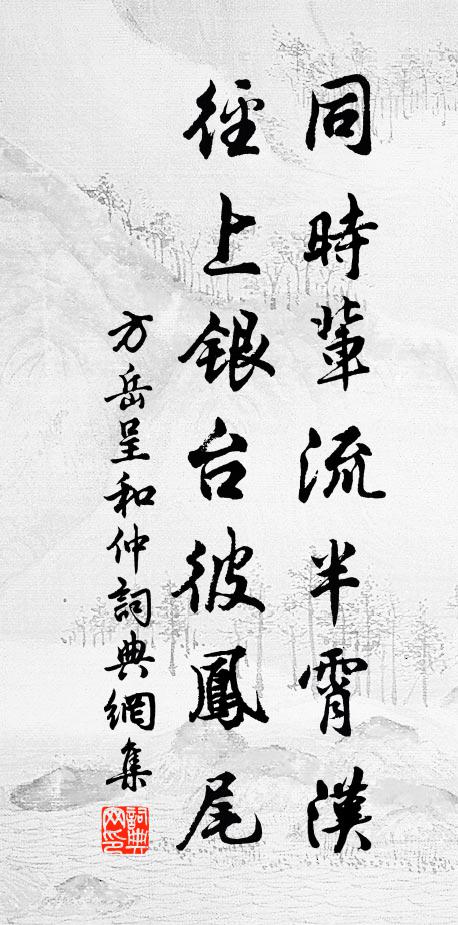 同時輩流半霄漢
徑上銀台彼鳳尾
方岳呈和仲詞典網集
詞典网印